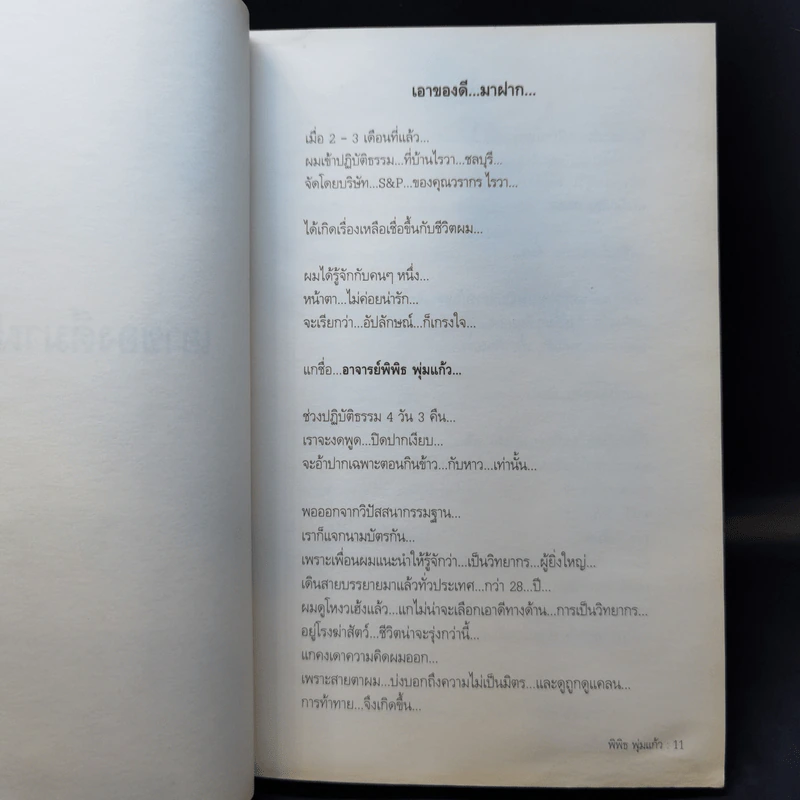 เอาของดี...มาฝาก...
เมื่อ 2 - 3 เดือนที่แล้ว...
ผมเข้าปฏิบัติธรรม...ที่บ้านไรวา...ชลบุรี...
จัดโดยบริษัท...S&P...ของคุณวรากร ไรวา...
ได้เกิดเรื่องเหลือเชื่อขึ้นกับชีวิตผม...
ผมได้รู้จักกับคนๆ หนึ่ง...
หน้าตา...ไม่ค่อยน่ารัก...
จะเรียกว่า...อัปลักษณ์...ก็เกรงใจ...
แกชื่อ...อาจารย์พิพิธ พุ่มแก้ว...
ช่วงปฏิบัติธรรม 4 วัน 3 คืน...
เราจะงดพูด...ปิดปากเงียบ...
จะอ้าปากเฉพาะตอนกินข้าว...กับหาว...เท่านั้น...
พอออกจากวิปัสสนากรรมฐาน...
เราก็แจกนามบัตรกัน...
เพราะเพื่อนผมแนะนำให้รู้จักว่า...เป็นวิทยากร...ผู้ยิ่งใหญ่...
เดินสายบรรยายมาแล้วทั่วประเทศ...กว่า 28...ปี...
ผมดูโหงวเฮ้งแล้ว...แกไม่น่าจะเลือกเอาดีทางด้าน...การเป็นวิทยากร...
อยู่โรงฆ่าสัตว์...ชีวิตน่าจะรุ่งกว่านี้...
แกคงเดาความคิดผมออก...
เพราะสายตาผม...บ่งบอกถึงความไม่เป็นมิตร...และดูถูกดูแคลน...
การท้าทาย...จึงเกิดขึ้น...
พิพิธ พุ่มแก้ว : 11